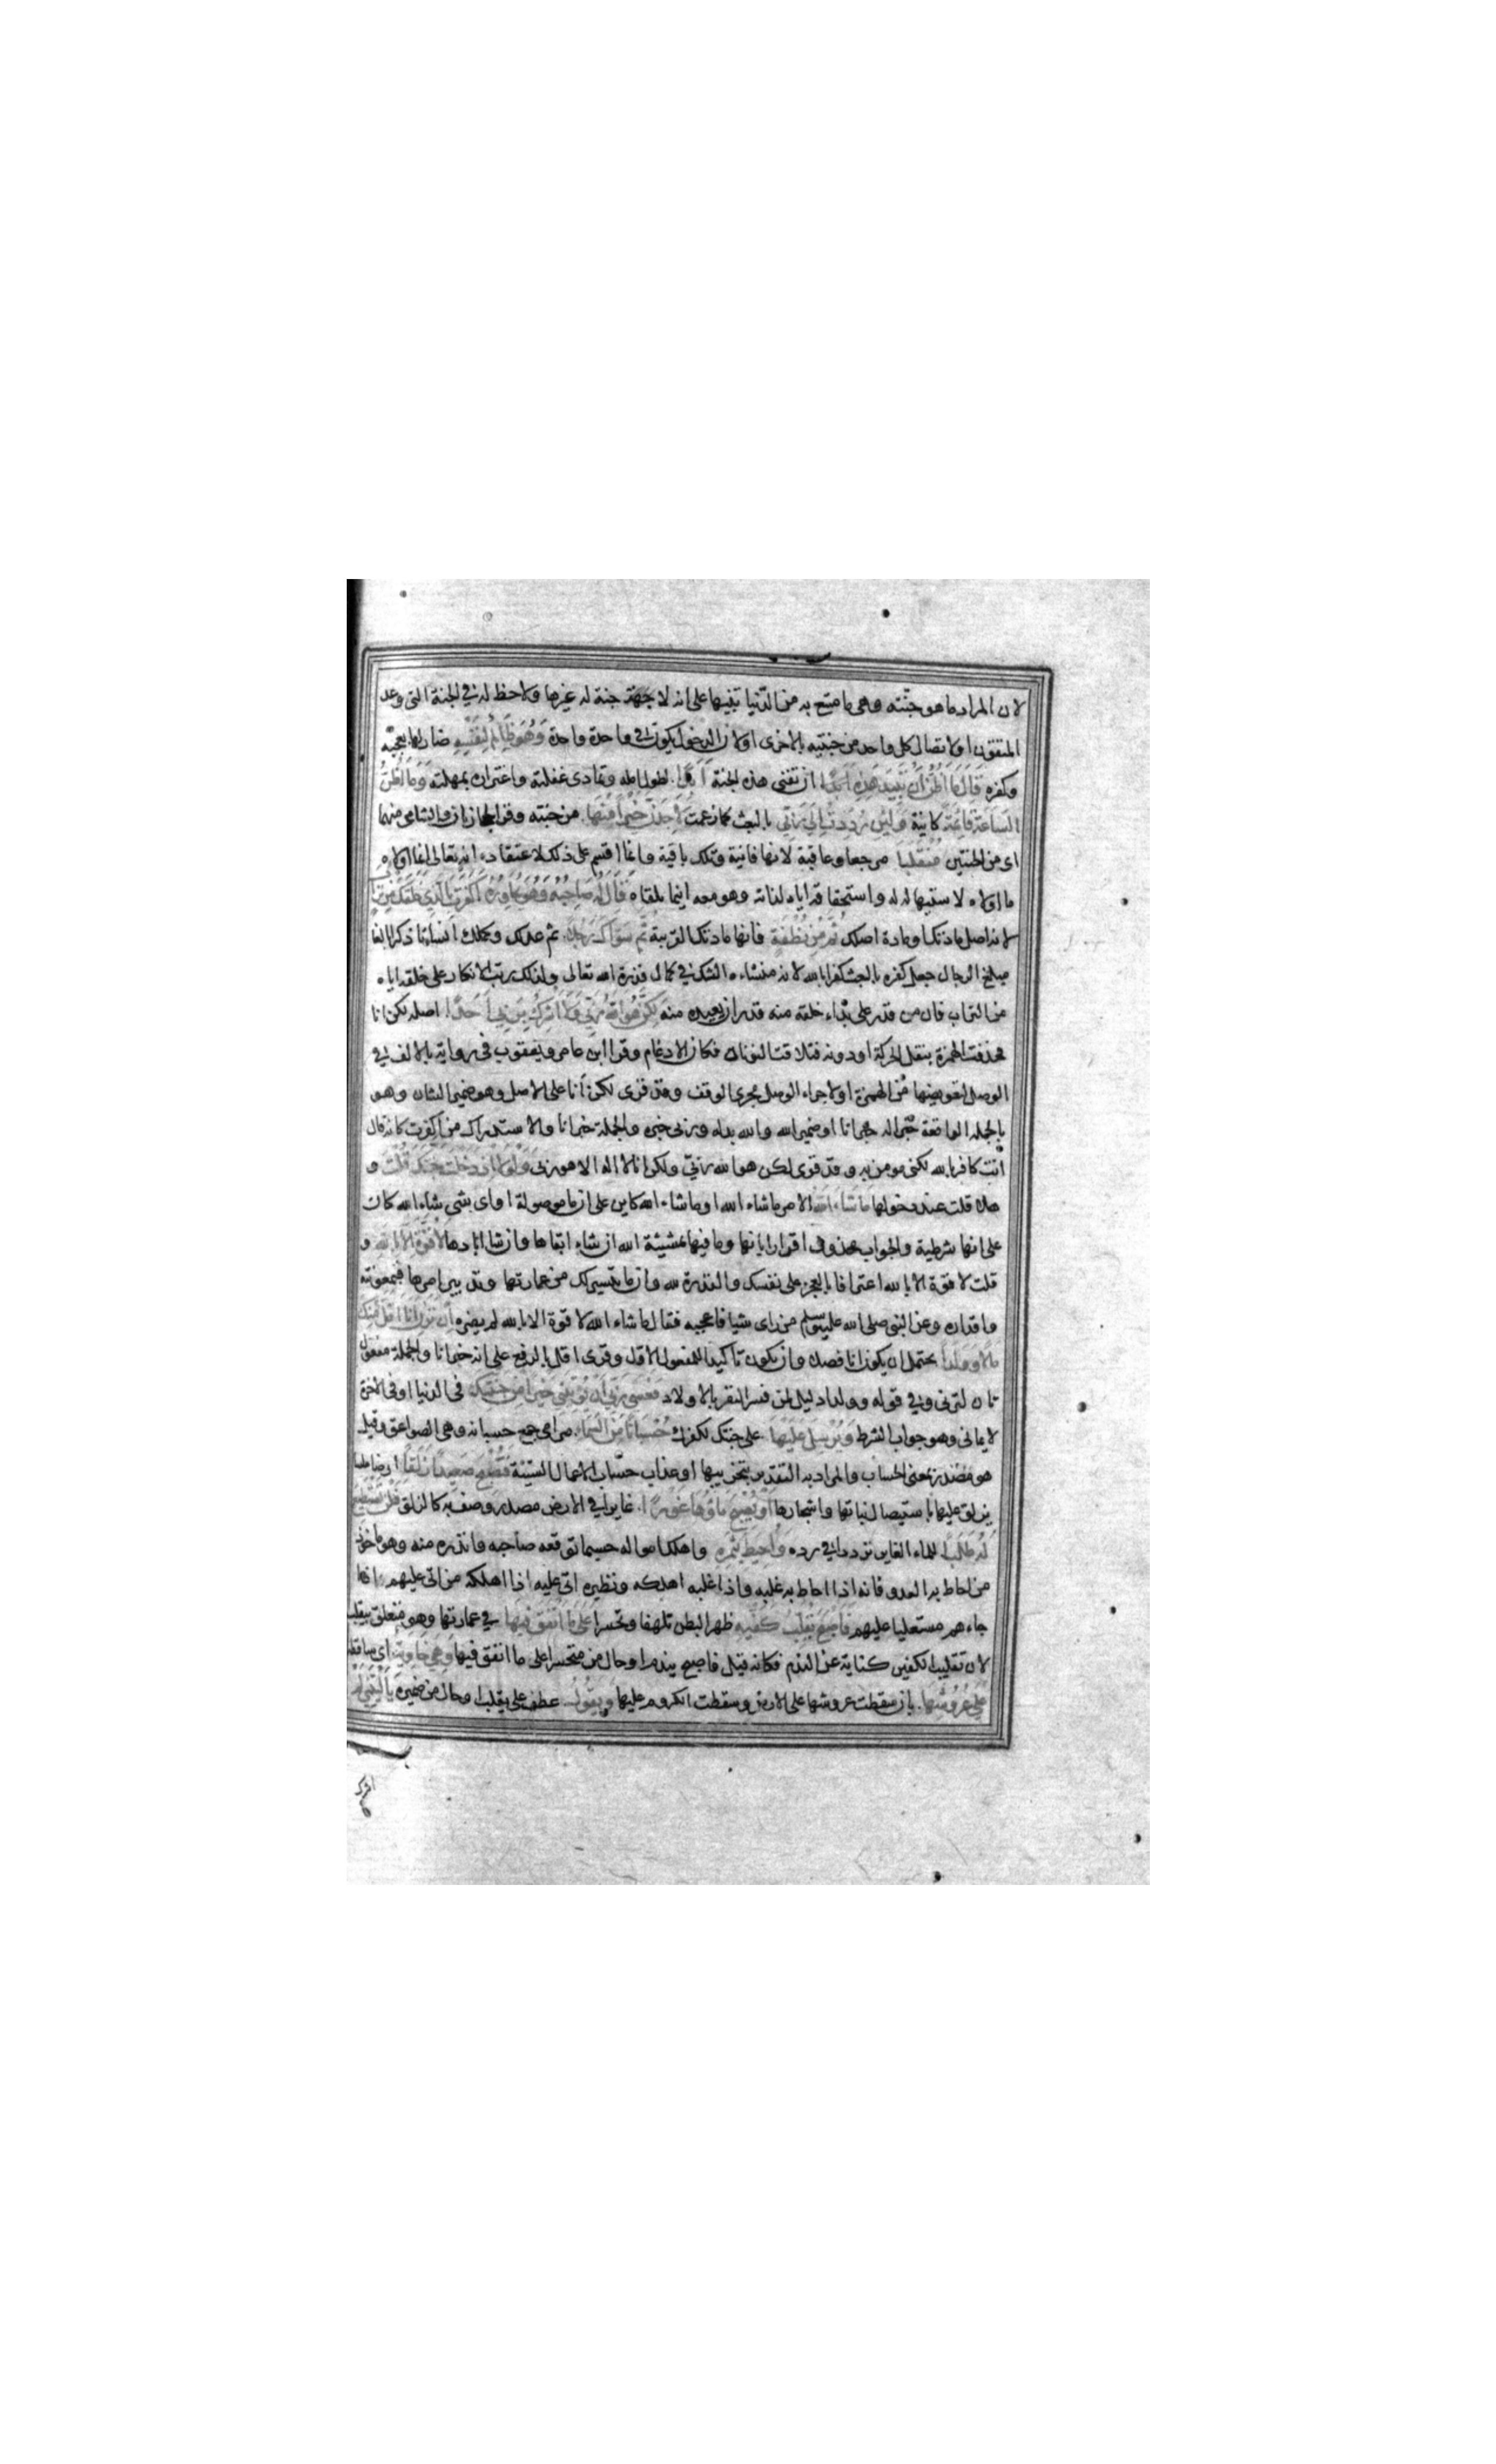 لان المراد ما هو جنته وهي ما متع به من الدنيا تنبيها على انه لا جنة له غيرها ولا حظ له في الجنة التي وعد
المتقون او لاتصال كل واحد من جنتيه بالاخرى او لان الدخول يكون في واحدة واحدة وَهُوَ ظَالِمٌ لِنَفْسِهِ ضار لها بعجبه
وكفره قَالَ مَا أَظُنُّ أَنْ تَبِيدَ هَذِهِ أَبَدًا ان تفنى هذه الجنة ابدا لطول امله وتمادى غفلته واغتراره بمهلته وَمَا أَظُنُّ
السَّاعَةَ قَائِمَةً كاينة وَلَئِنْ رُدِدْتُ إِلَى رَبِّي بالبعث كما زعمت لَأَجِدَنَّ خَيْرًا مِنْهَا من جنته وقرا الحجازيان والشامي منهما
اى من الجنتين مُنْقَلَبًا مرجعا وعاقبة لانها فانية وتلك باقية وانما اقسم على ذلك لاعتقاده انه تعالى انما اولاه
ما اولاه لاستيهاله له واستحقاقه اياه لذاته وهو معه اينما يلقاه قَالَ لَهُ صَاحِبُهُ وَهُوَ يُحَاوِرُهُ أَكَفَرْتَ بِالَّذِي خَلَقَكَ مِنْ تُرَابٍ
لانه اصل مادتك او مادة اصلك ثُمَّ مِنْ نُطْفَةٍ فانها مادتك القريبة ثُمَّ سَوَّاكَ رَجُلًا ثم عدلك وكملك انسانا ذكرا بالغا
مبلغ الرجال جعل كفره بالبعث كفرا بالله لانه منشاءه الشك في كمال قدرة الله تعالى ولذلك رتب الانكار على خلقه اياه
من التراب فان من قدر على بداء خلقه منه قدر ان يعيده منه لَكِنَّا هُوَ اللَّهُ رَبِّي وَلَا أُشْرِكُ بِرَبِّي أَحَدًا اصله لكن انا
فحذفت الهمزة بنقل الحركة او دونه فتلاقت النونان فكان الادغام وقرا ابن عامر ويعقوب في رواية بالالف في
الوصل لتعويضها من الهمزة او لاجراء الوصل مجرى الوقف وقد قرى لكن انا على الاصل وهو ضمير الشان وهو
بالجملة الواقعة خبرا له خبر انا او ضمير الله والله بدله وربى خبره والجملة خبر انا والاستدراك من اكفرت كانه قال
انت كافر بالله لكنى مومن به وقد قرى لكن هو الله ربي ولكن انا لا اله الا هو ربى وَلَوْلَا إِذْ دَخَلْتَ جَنَّتَكَ قُلْتَ و
هلا قلت عند دخولها مَا شَاءَ اللَّهُ الامر ما شاء الله او ما شاء الله كاين على ان ما موصولة او اى شي شاء الله كان
على انها شرطية والجواب محذوف اقرارا بانها وما فيها بمشيئة الله ان شاء ابقاها وان شا ابادها لَا قُوَّةَ إِلَّا بِاللَّهِ و
قلت لا قوة الا بالله اعترافا بالعجز على نفسك والقدرة لله وان ما تيسر لك من عمارتها وتدبير امرها فبمعونته
واقداره وعن النبى صلى الله عليه وسلم من راى شيا فاعجبه فقال ما شاء الله لا قوة الا بالله لم يضره إِنْ تَرَنِ أَنَا أَقَلَّ مِنْكَ
مَالًا وَوَلَدًا يحتمل ان يكون انا فصلا وان يكون تاكيدا للمفعول الاول وقرى اقل بالرفع على انه خبر انا والجملة مفعول
ثان لترنى وفي قوله وولدا دليل لمن فسر النفر بالاولاد فَعَسَى رَبِّي أَنْ يُؤْتِيَنِي خَيْرًا مِنْ جَنَّتِكَ في الدنيا او في الاخرة
لايمانى وهو جواب الشرط وَيُرْسِلَ عَلَيْهَا على جنتك لكفرك حُسْبَانًا مِنَ السَّمَاءِ مرامى جمع حسبانه وهى الصواعق وقيل
هو مصدر بمعنى الحساب والمراد به التقدير بتخريبها او عذاب حساب الاعمال السيئة فَتُصْبِحَ صَعِيدًا زَلَقًا ارضا ملسا
يزلق عليها باستيصال نباتها واشجارها أَوْ يُصْبِحَ مَاؤُهَا غَوْرًا غايرا في الارض مصدر وصف به كالزلق فَلَنْ تَسْتَطِيعَ
لَهُ طَلَبًا للماء الغاير ترددا في رده وَأُحِيطَ بِثَمَرِهِ واهلك امواله حسبما توقعه صاحبه وانذره منه وهو ماخوذ
من احاط به العدو فانه اذا احاط به غلبه واذا غلبه اهلكه ونظيره اتى عليه اذا اهلكه من اتى عليهم اذا
جاءهم مستعليا عليهم فَأَصْبَحَ يُقَلِّبُ كَفَّيْهِ ظهرا لبطن تلهفا وتحسرا عَلَى مَا أَنْفَقَ فِيهَا في عمارتها وهو متعلق بيقلب
لان تقليب الكفين كناية عن الندم فكانه قيل فاصبح يندم او حال من متحسرا على ما انفق فيها وَهِيَ خَاوِيَةٌ اى ساقطة
عَلَى عُرُوشِهَا بان سقطت عروشها على الارض وسقطت الكروم عليها وَيَقُولُ عطف على يقلب او حال من ضميره يَا لَيْتَنِي لَمْ
اشرك